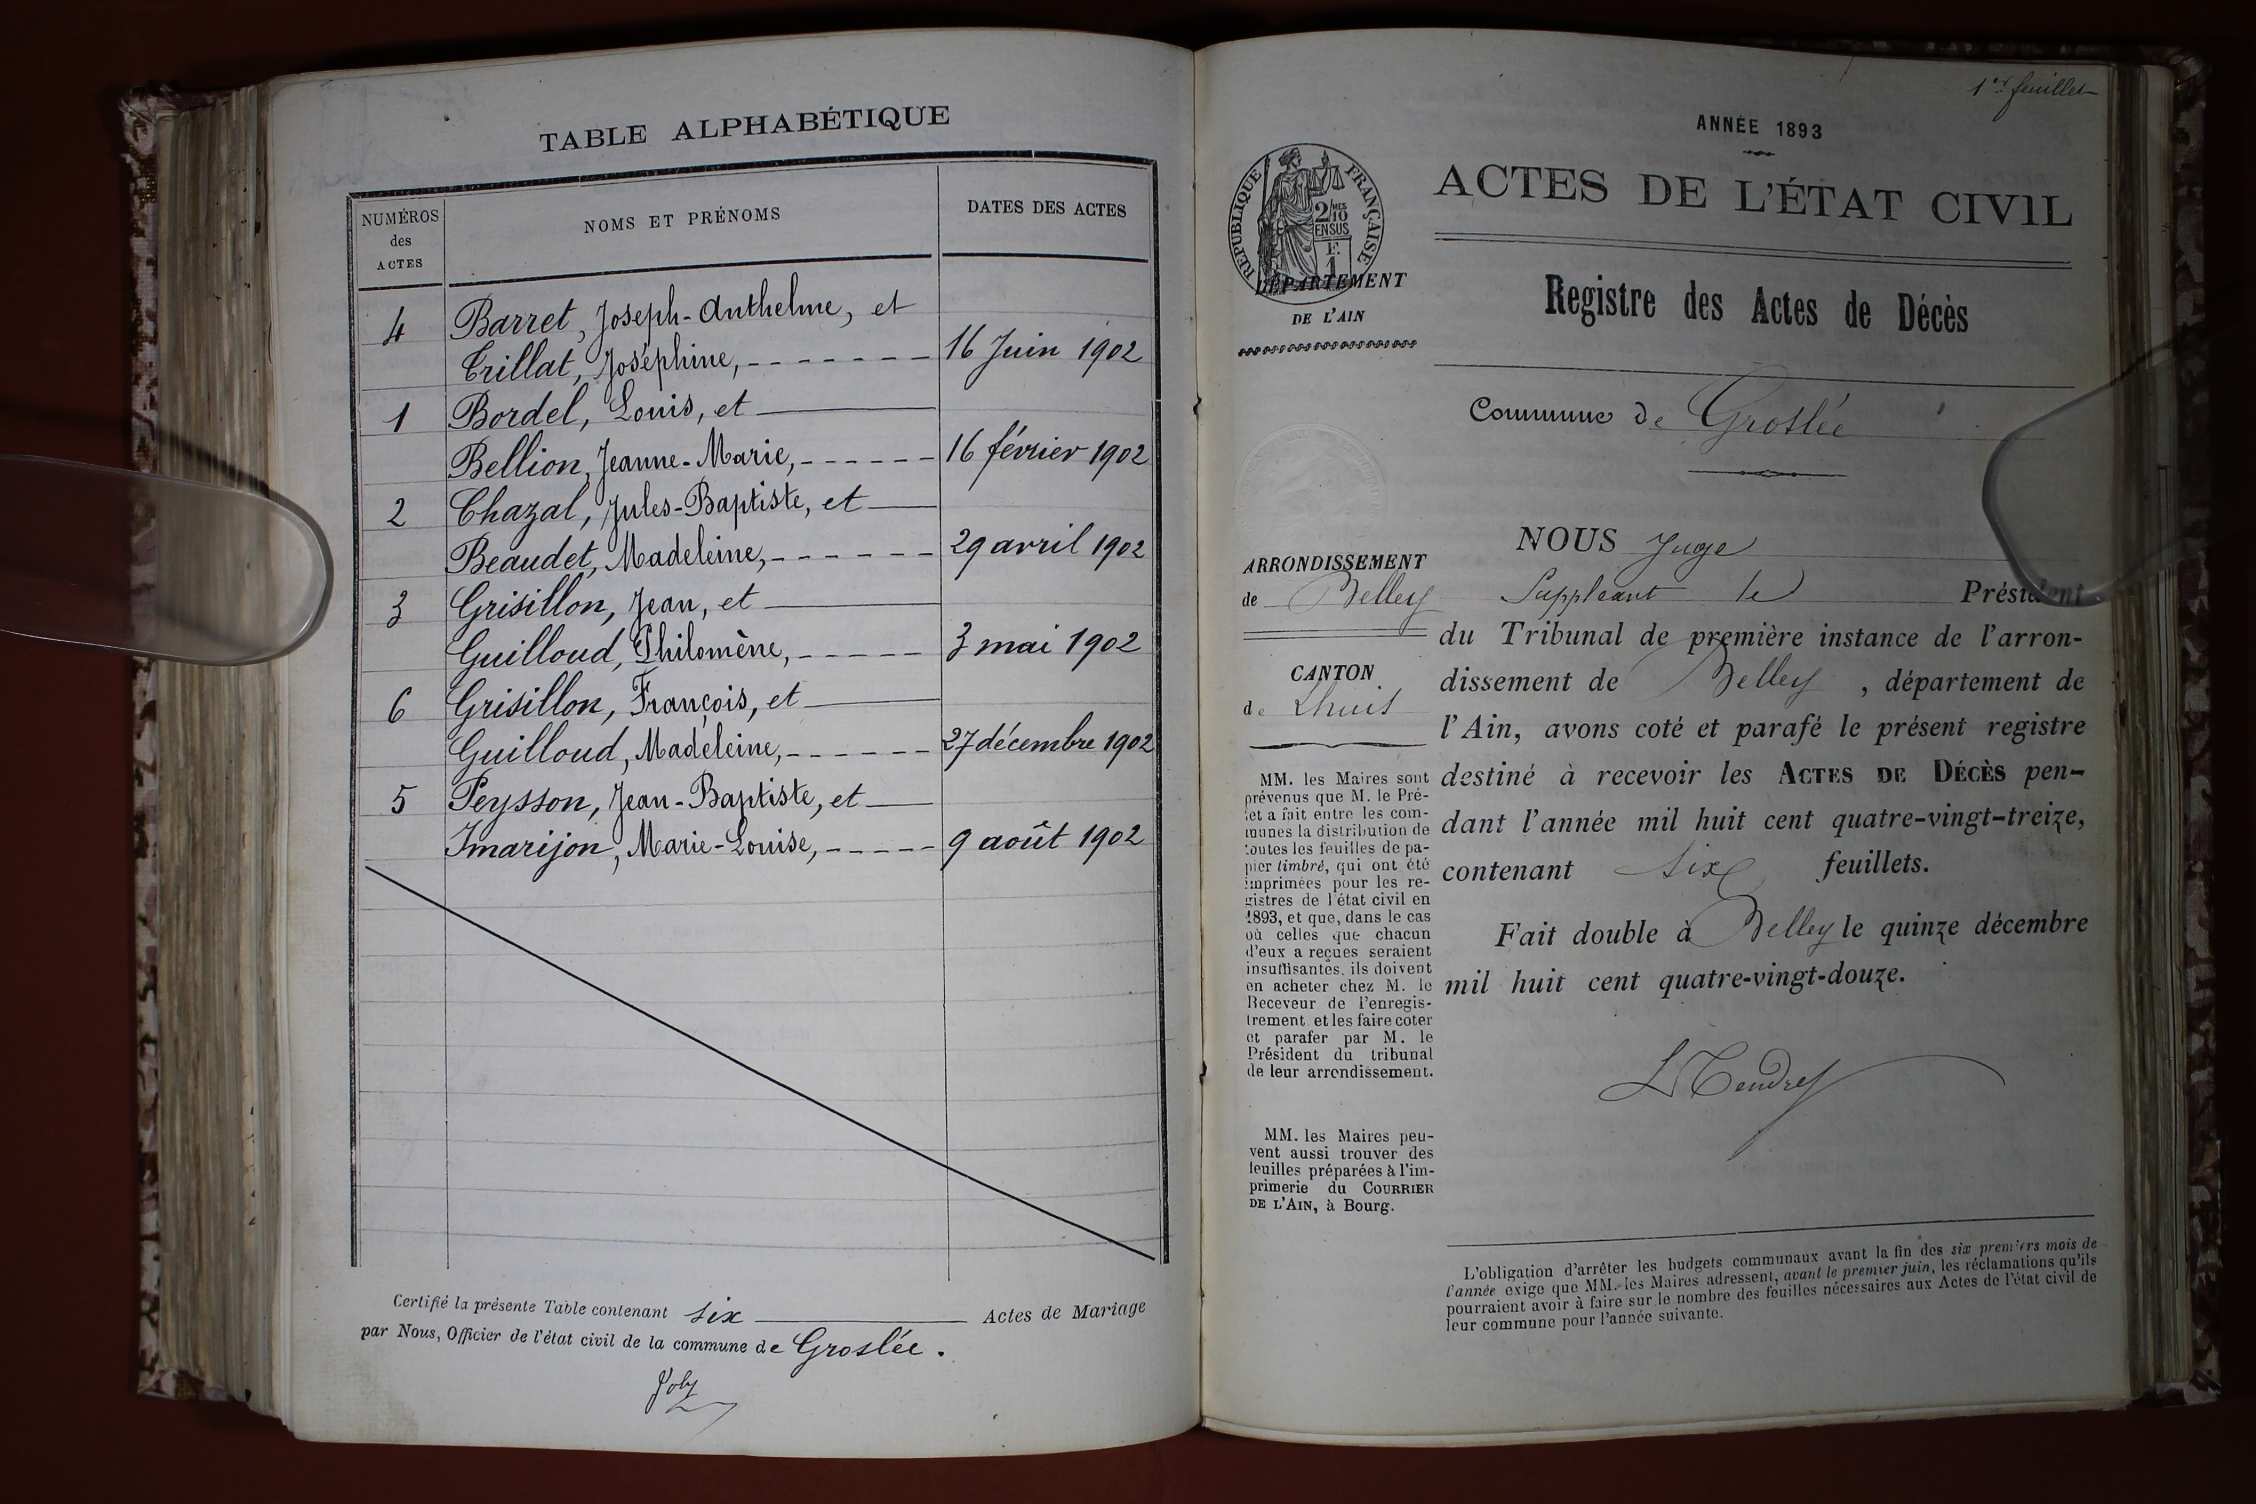 TABLE ALPHABÉTIQUE
NUMÉROS
des
ACTES
NOMS ET PRÉNOMS
DATES DES ACTES
4 Barret, Joseph-Anthelme, et
Trillat, Joséphine, 16 Juin 1902
1 Bordel, Louis, et
Bellion, Jeanne-Marie, 16 février 1902
2 Chazal, Jules-Baptiste, et
Beaudet, Madeleine, 29 avril 1902
3 Grisillon, Jean, et
Guilloud, Philomène, 3 mai 1902
6 Grisillon, François, et
Guilloud, Madeleine, 27 décembre 1902
5 Peysson, Jean-Baptiste, et
Jmarijon, Marie-Louise, 9 août 1902
Certifié la présente Table contenant six Actes de Mariage
par Nous, Officier de l'état civil de la commune de Groslée.
1er feuillet
ANNÉE 1893
ACTES DE L'ÉTAT CIVIL
RÉPUBLIQUE FRANÇAISE
2/10 MES
EN SUS
F.
1
DÉPARTEMENT
DE L'AIN
Registre des Actes de Décès
Commune de Groslée
ARRONDISSEMENT
de Belley
CANTON
de Lhuis
MM. les Maires sont
prévenus que M. le Pré-
fet a fait entre les com-
munes la distribution de
toutes les feuilles de pa-
pier timbré, qui ont été
imprimées pour les re-
gistres de l'état civil en
1893, et que, dans le cas
où celles que chacun
d'eux a reçues seraient
insuffisantes, ils doivent
en acheter chez M. le
Receveur de l'enregis-
trement et les faire coter
et parafer par M. le
Président du tribunal
de leur arrondissement.
MM. les Maires peu-
vent aussi trouver des
feuilles préparées à l'im-
primerie du COURRIER
DE L'AIN, à Bourg.
NOUS Juge
Suppléant le Président
du Tribunal de première instance de l'arron-
dissement de Belley, département de
l'Ain, avons coté et parafé le présent registre
destiné à recevoir les ACTES DE DÉCÈS pen-
dant l'année mil huit cent quatre-vingt-treize,
contenant six feuillets.
Fait double à Belley le quinze décembre
mil huit cent quatre-vingt-douze.
L'obligation d'arrêter les budgets communaux avant la fin des six premiers mois de
l'année exige que MM. les Maires adressent, avant le premier juin, les réclamations qu'ils
pourraient avoir à faire sur le nombre des feuilles nécessaires aux Actes de l'état civil de
leur commune pour l'année suivante.